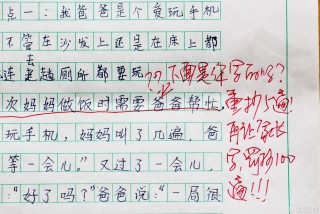 点一:我爸爸是个爱玩手机
不管在沙发上还是在床上都
连去趟厕所都要玩
次妈妈做饭时需要爸爸帮忙,
玩手机,妈妈叫了几遍,爸
等一会儿。”又过了一会儿,
:“好了吗?”爸爸说:“一局很
??下面是深字吗?
重抄5遍!
再让家长
字,罚抄100
遍!!!